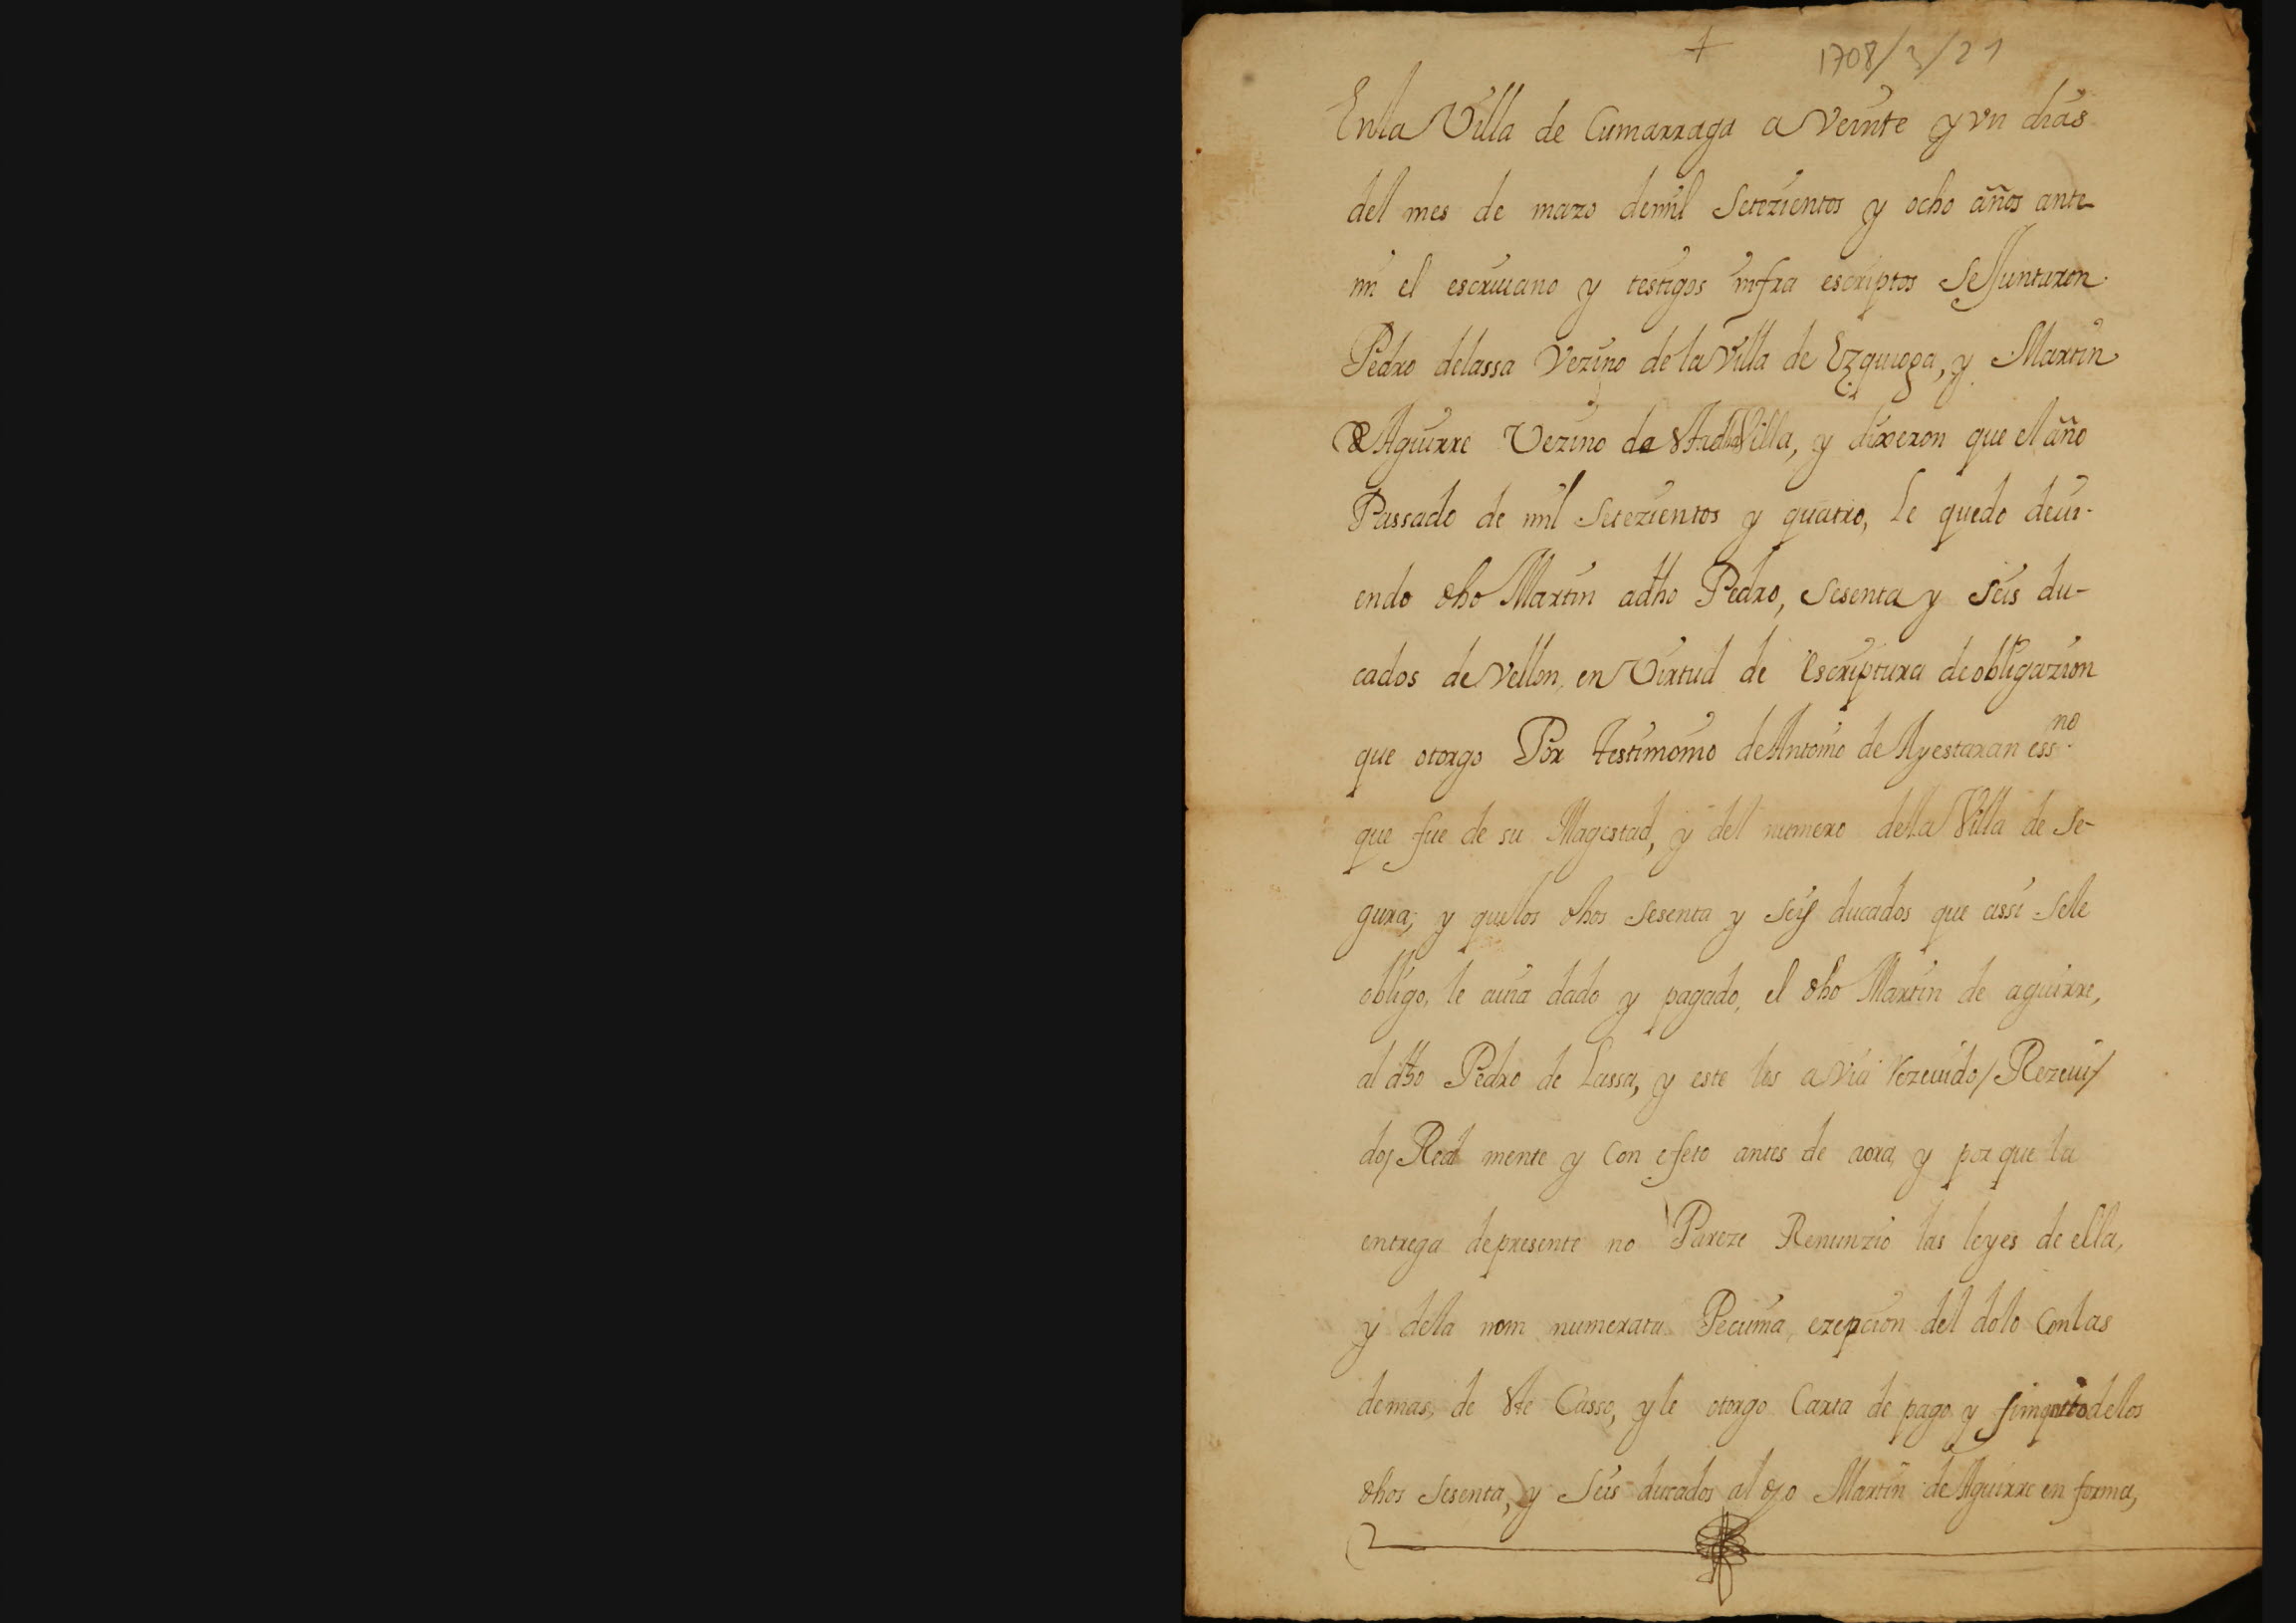 +
1708/3/21
En la Villa de Cumarraga a Veinte y vn dias
del mes de mazo de mil Setezientos y ocho años ante
mi el escriuano y testigos infra escriptos Se Juntaron
Pedro de lassa Vezino de la Villa de Ezquioga, y Martin
de Aguirre Vezino de Sta dha Villa, y dixeron que el año
Passado de mil Setezientos y quatro, le quedo deui-
endo dho Martin a dho Pedro, Sesenta y Seis du-
cados de Vellon, en Virtud de Escriptura de obligazion
que otorgo Por testimonio de Antonio de Ayestaran essno
que fue de su Magestad, y del numero de la Villa de Se-
gura; y que los dhos sesenta y Seis ducados que assi Sele
obligo, le auia dado y pagado, el dho Martin de aguirre,
al dho Pedro de Lassa, y este los a via rezeuido/Rezeui/
do/ Real mente y Con efeto antes de aora, y por que la
entrega de presente no Pareze Renunzio las leyes de ella,
y de la nom numerata Pecunia, ezepcion del dolo Con las
demas, de Ste Casso, y le otorgo Carta de pago y finiquito de los
dhos Sesenta, y Seis ducados al dho Martin de Aguirre en forma,